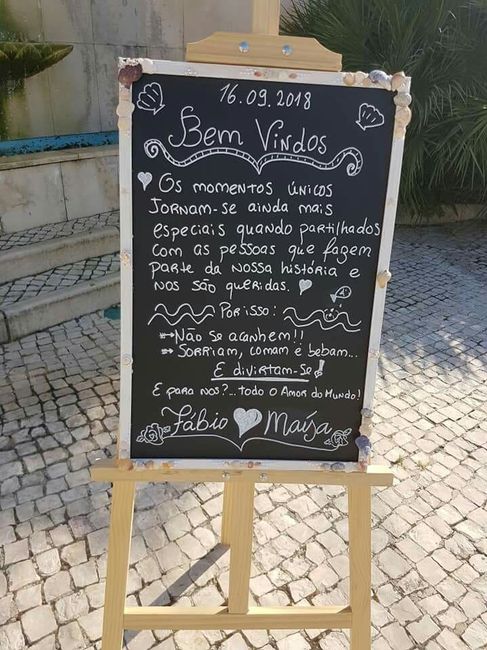 16.09.2018
Bem Vindos
Os momentos únicos
Tornam-se ainda mais
especiais quando partilhados
com as pessoas que fazem
parte da nossa história e
nos são queridas.
Por isso:
Não se acanhem!!
Sorriam, comam e bebam...
E divirtam-se!
E para nos?...todo o Amor do Mundo!
Fábio Maísa